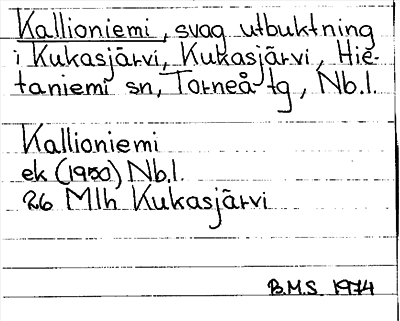 Kallioniemi, svag utbuktning
i Kukasjärvi, Kukasjärvi, Hie-
taniemi sn, Torneå tg, Nb.l.
Kallioniemi
ek (1950) Nb.l.
26 Mlh Kukasjärvi
B.M.S. 1974